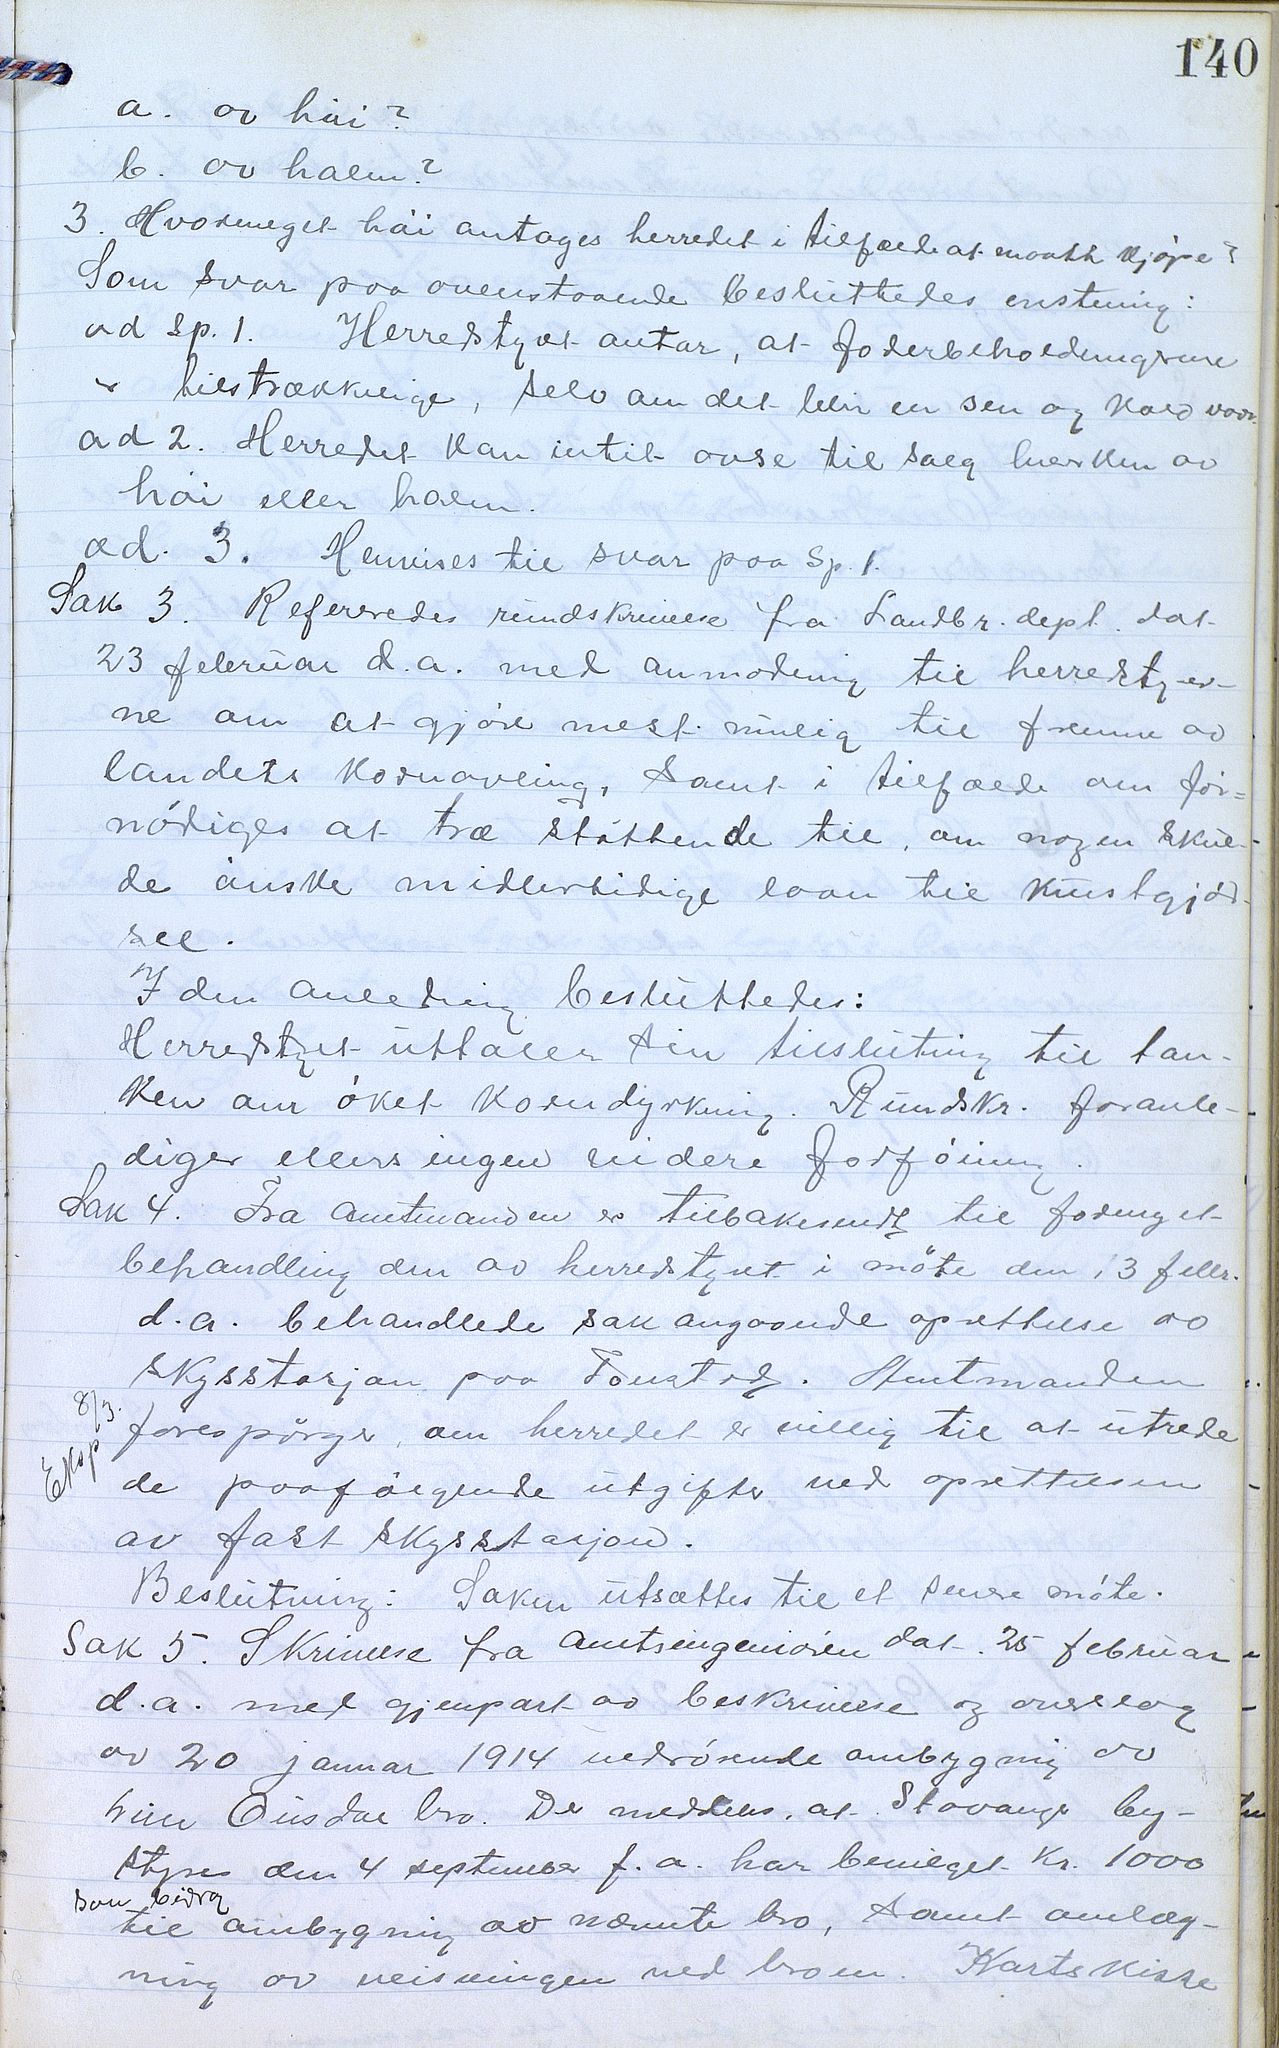 140
a. av høi?
b. av halm?
3. Hvormeget høi antages herredet i tilfælde at maatte kjøpe?
Som svar paa ovenstaaende besluttedes enstemig:
ad sp. 1. Herredstyret antar, at foderbeholdningerne
er tilstrækkelige, selv om det blir en sen og kold vaar.
ad 2. Herredet kan intet avse til salg hverken av
høi eller halm.
ad. 3. Henvises til svar paa sp. 1.
Sak 3. Refereredes rundskrivelse fra Landbr. dept. dat.
23 februar d.a. med anmodning til herredstyer-
ne om at gjøre mest mulig til fremme av
landets kornavling, samt i tilfælde om for=
nødiges at træ støttende til, om nogen skul-
de ønske midlertidige laan til kunstgjød-
sel.
I den anledning besluttedes:
Herredstyret uttaler sin tilslutning til tan-
ken om øket korndyrkning. Rundskr. foranle-
diger ellers ingen videre forføining.
Sak 4. Fra amtmanden er tilbakesendt til fornyet
behandling den av herredstyret i møte den 13 febr.
d.a. behandlede sak angaaende oprettelse av
skysstasjon paa. Amtmanden
Eksp 8/3.
forespørger, om herredet er villig til at utrede
de paafølgende utgifter ved oprettelsen
av fast skysstasjon.
Beslutning: Saken utsættes til et senere møte.
Sak 5. Skrivelse fra amtsingeniøren dat. 25 februar
d.a. med gjenpart av beskrivelse og overslag
av 20 januar 1914 vedrørende ombygning av
hvn Ousdal bro. Der meddeles, at Stavanger by-
styre den 4 september f.a. har bevilget kr. 1000
som bidrag
til ombygning av nævnte bro, samt omlæg-
ning av veisvingen ved broen. Kartskisse